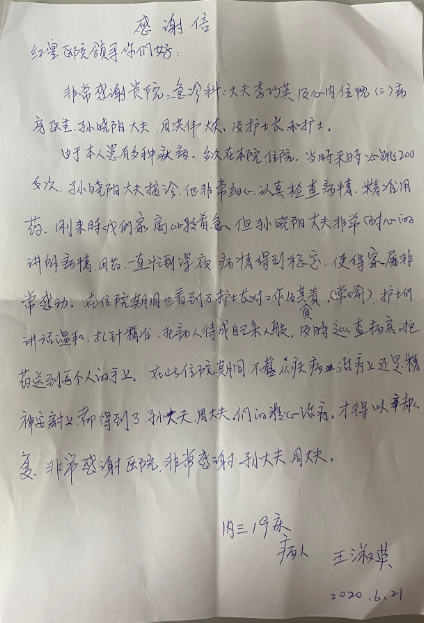 感谢信
红星医院领导你们好：
非常感谢贵院：急诊科：大夫李巧英及心内住院（三）病
房医生孙晓阳大夫，周洪伟大夫，及护士长和护士。
由于本人患有多种疾病。多次在本院住院，当时来时心跳200
多次，孙晓阳大夫接诊，他非常细心，认真检查病情，精准用
药。刚来时我们家属比较着急，但孙晓阳大夫非常耐心的
讲解病情，用药。一直忙到深夜，病情得到稳定，使得家属非
常感动。在住院期间也看到了护士长对工作认真负责（常鸽），护士们
讲话温和，扎针精准，把病人待成自己亲人般，及时巡查病房，把
药送到每个人的手上。在此住院期间，不管从疾病治病上还是精
神安慰上都得到了孙大夫，周大夫，们的精心治病。才得以
复，非常感谢医院，非常感谢孙大夫，周大夫。
内三19床
病人 王淑英
2020.6.21